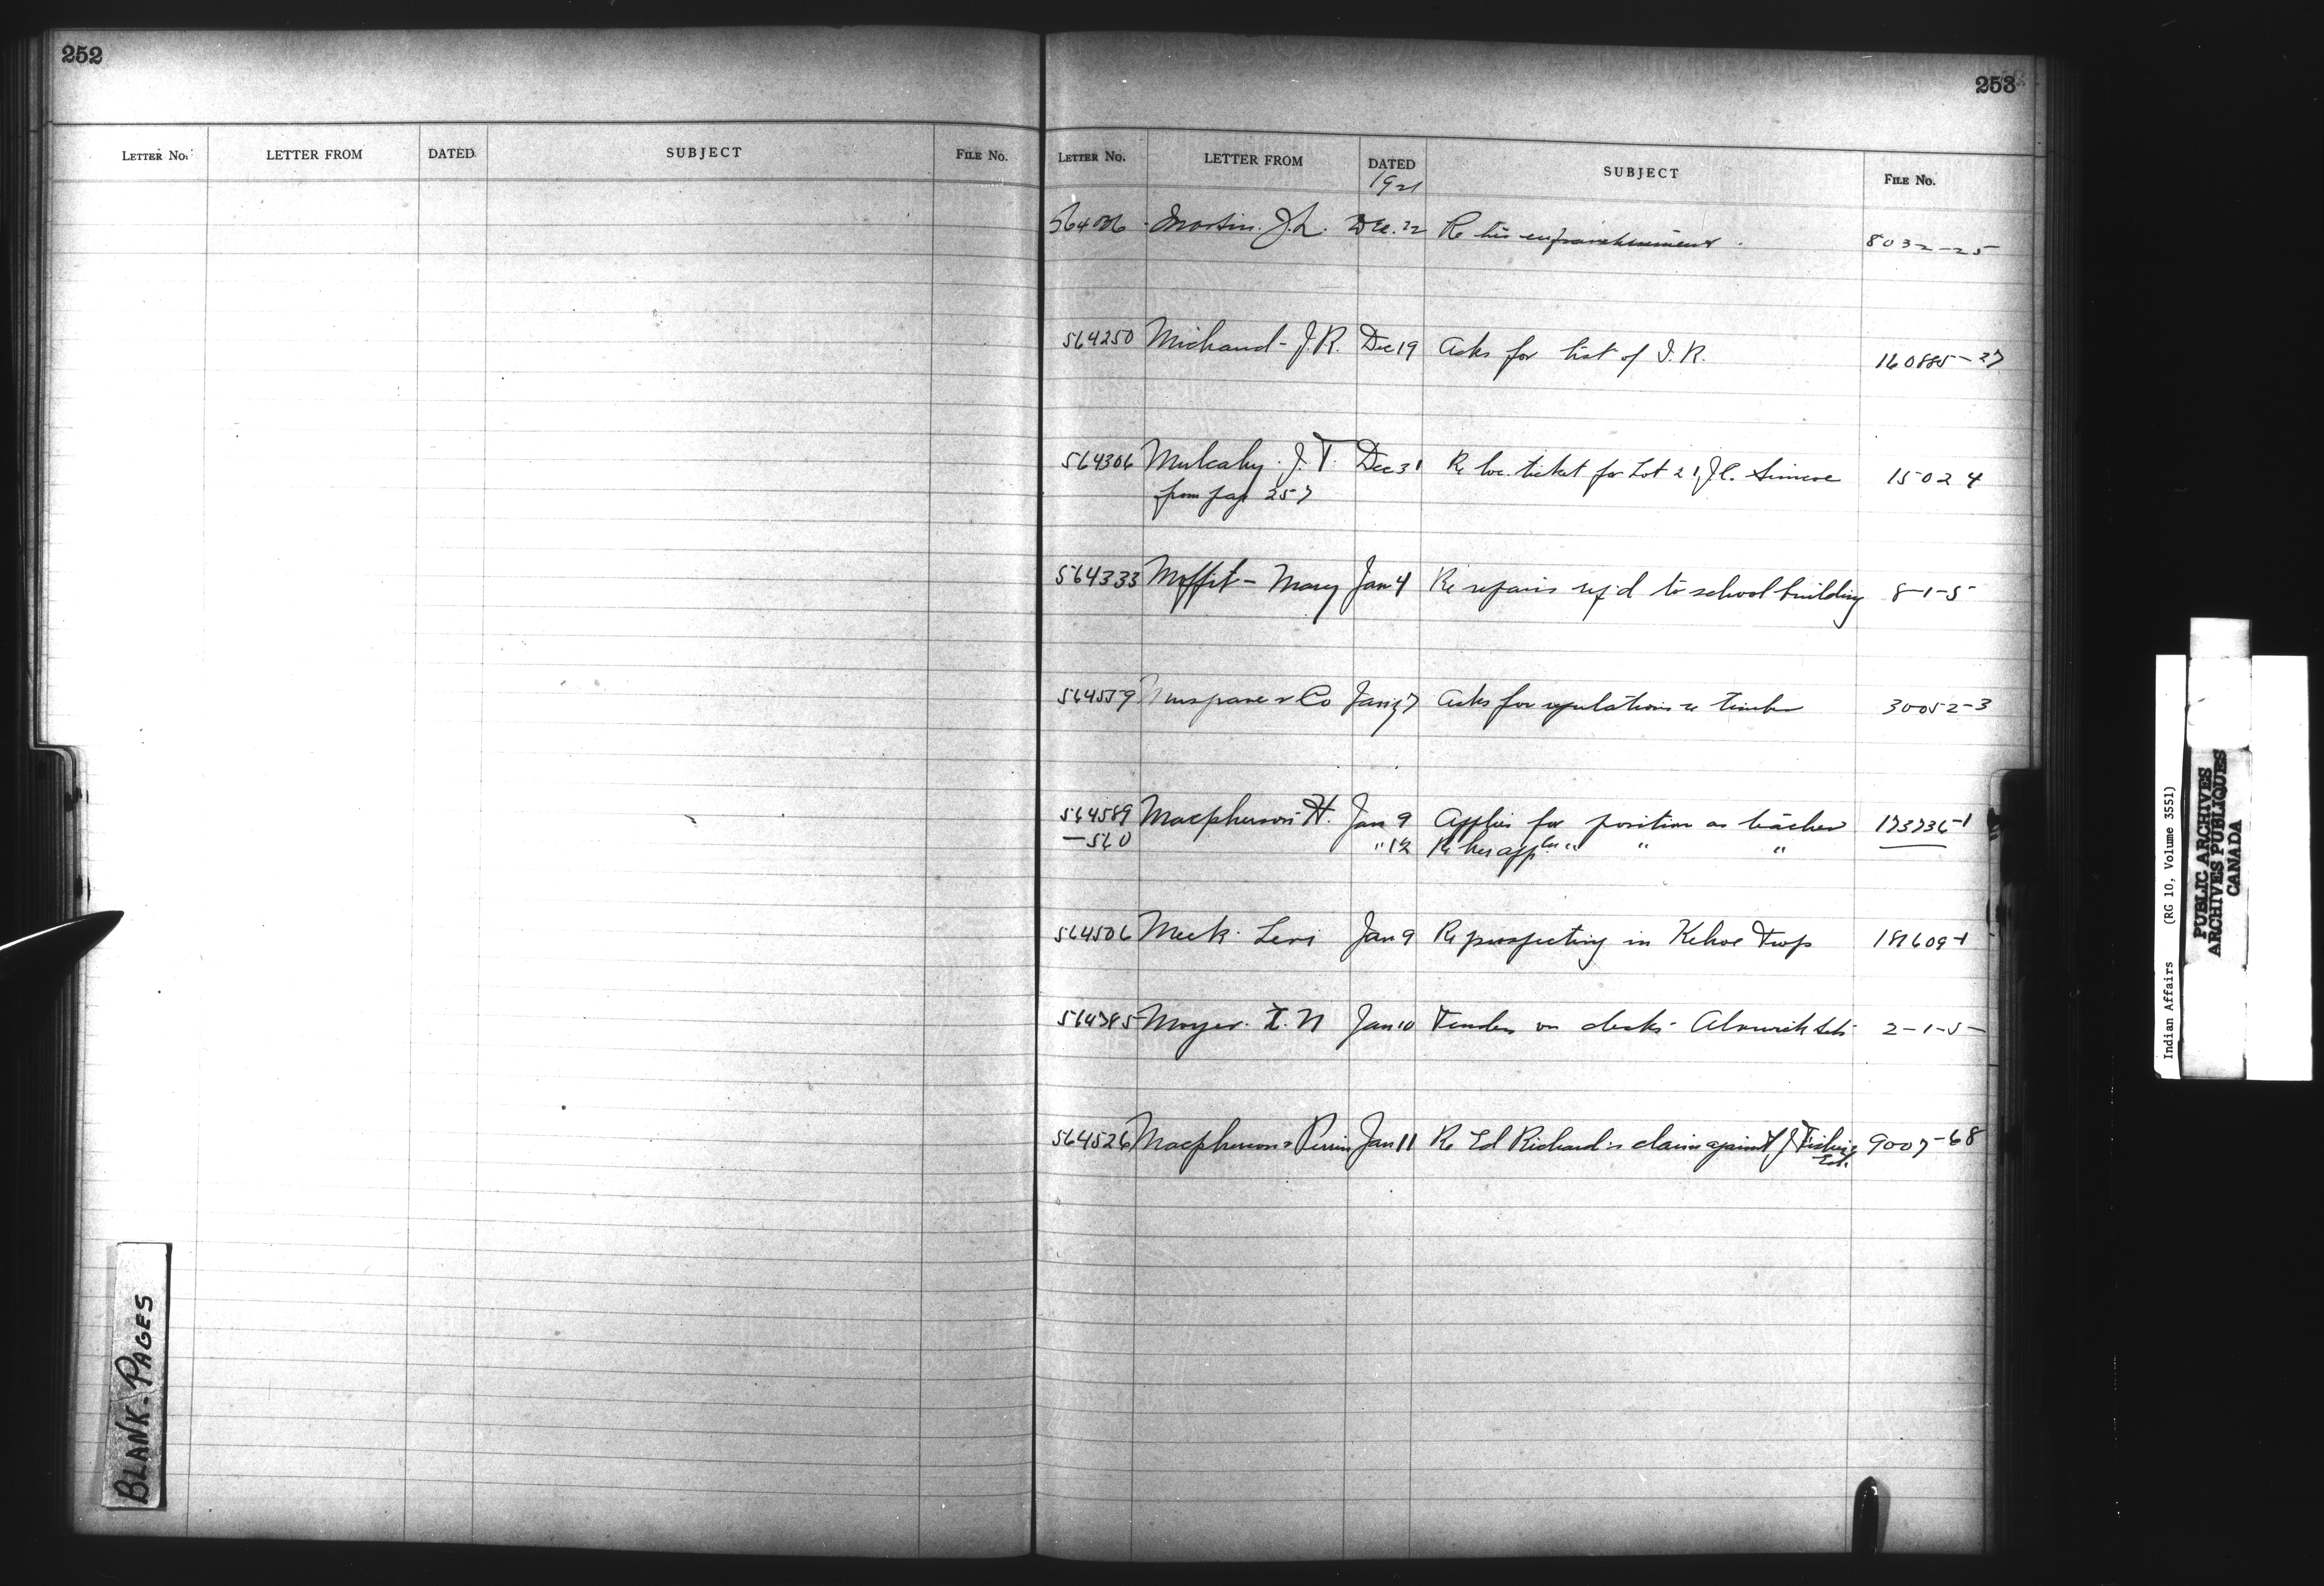 252
LETTER No. LETTER FROM DATED SUBJECT FILE No.
BLANK-PAGES
253
LETTER No. LETTER FROM DATED SUBJECT FILE No.
1921
Martin. J.L. Dec. 22 Re his enfranchisement. 8032-25
564250 Michaud - J.R. Dec 19 Asks for list of I.R. 160885-27
564306 Mulcahy. J.T. Dec 31 Re loc. ticket for Lot 21, Simcoe 15024
from page 257
564333 Moffit - Mary Jan 4 Re repairs req'd to school building 8-1-5
& Co Jan 7 Asks for regulations re timber 30052-3
564589 Macpherson H. Jan 9 Applies for position as teacher 173736-1
-560 " 12 Re her appln " " "
564506 Meek. Levi Jan 9 Re prospecting in Kehoe Twp
564785 Moyer. Jan 10 Tender on desks - Alnwick 2-1-5
564526 Macpherson & Perrin Jan 11 Re Ed Richard's claim against J. 9007-68
Indian Affairs (RG 10, Volume 3551)
PUBLIC ARCHIVES
ARCHIVES PUBLIQUES
CANADA